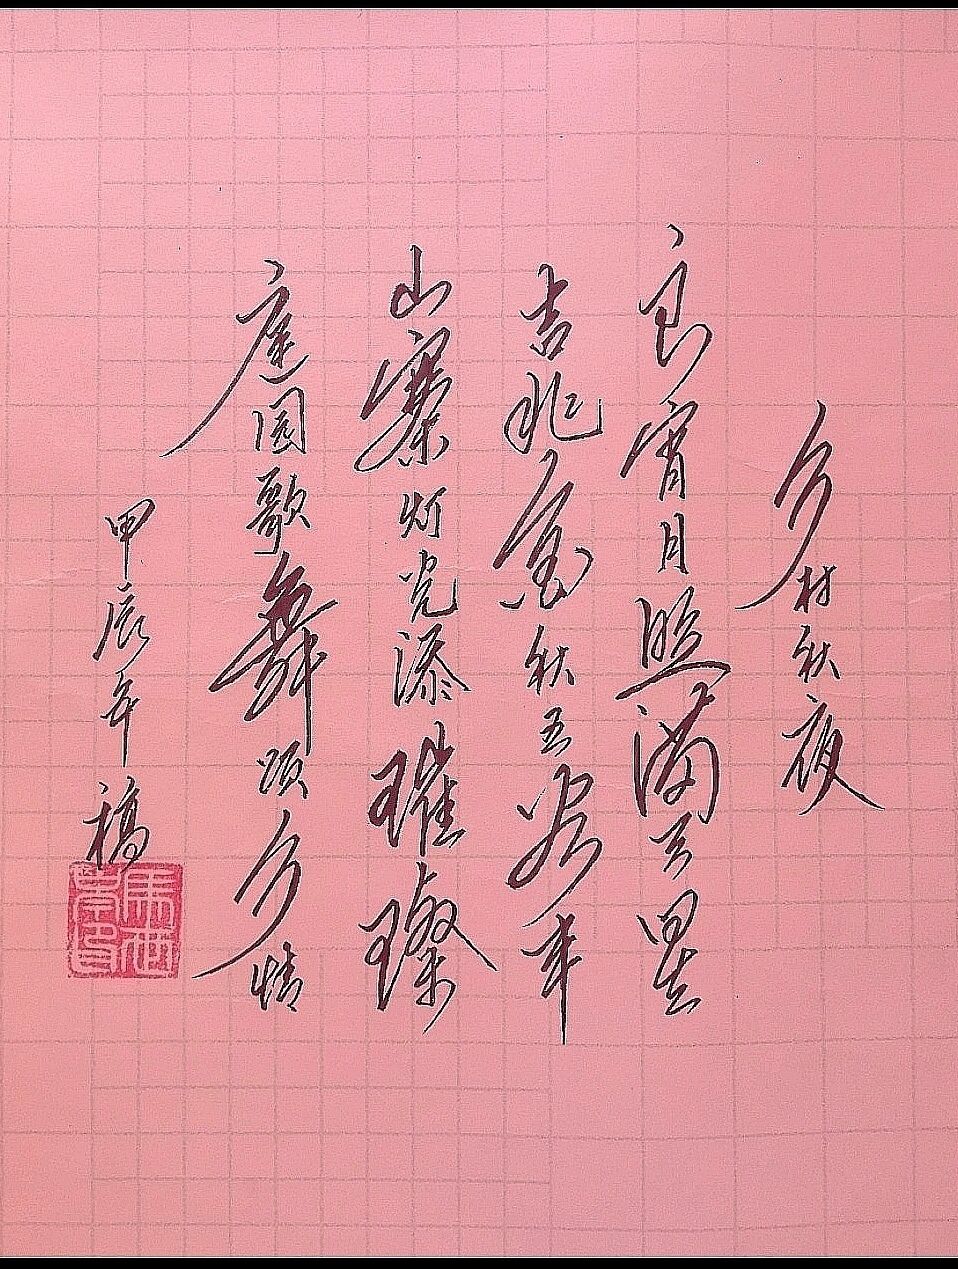 乡村秋夜
良宵月照满天星
吉兆金秋五谷丰
山寨灯光添璀璨
庭园歌舞颂乡情
甲辰年稿